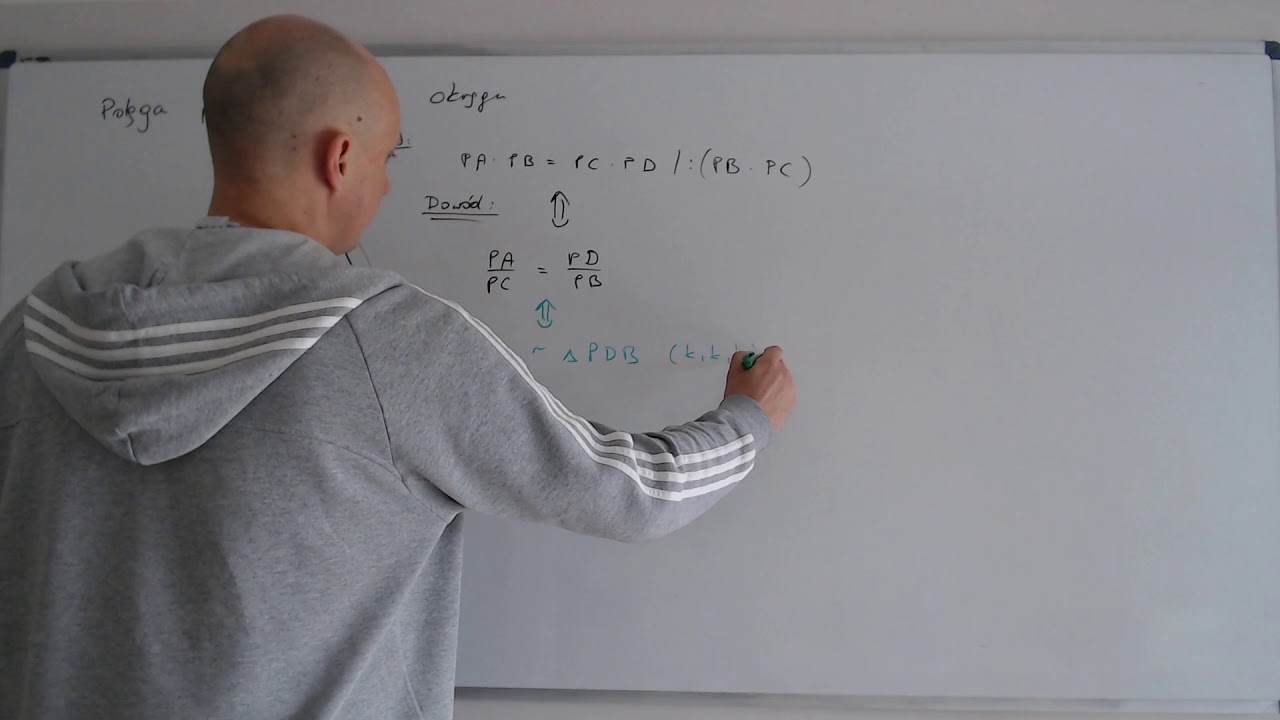 Potęga okręgu
PA · PB = PC · PD /:(PB · PC)
Dowód:
⇕
PA/PC = PD/PB
⇕
~ △PDB (k,k,